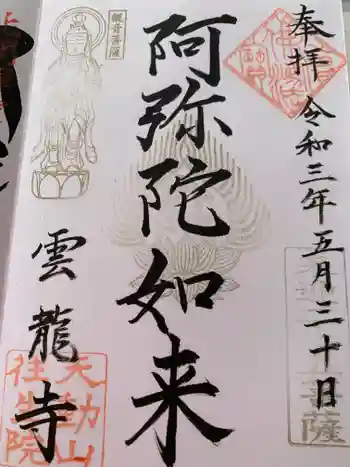 奉拝
令和三年五月三十日
阿弥陀如来
観音菩薩
雲龍寺
天勅山
往生院